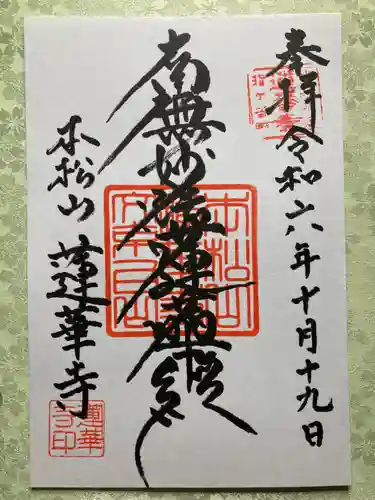 奉拝
令和六年十月十九日
南無妙法蓮華経
本松山
蓮華寺
蓮華寺印